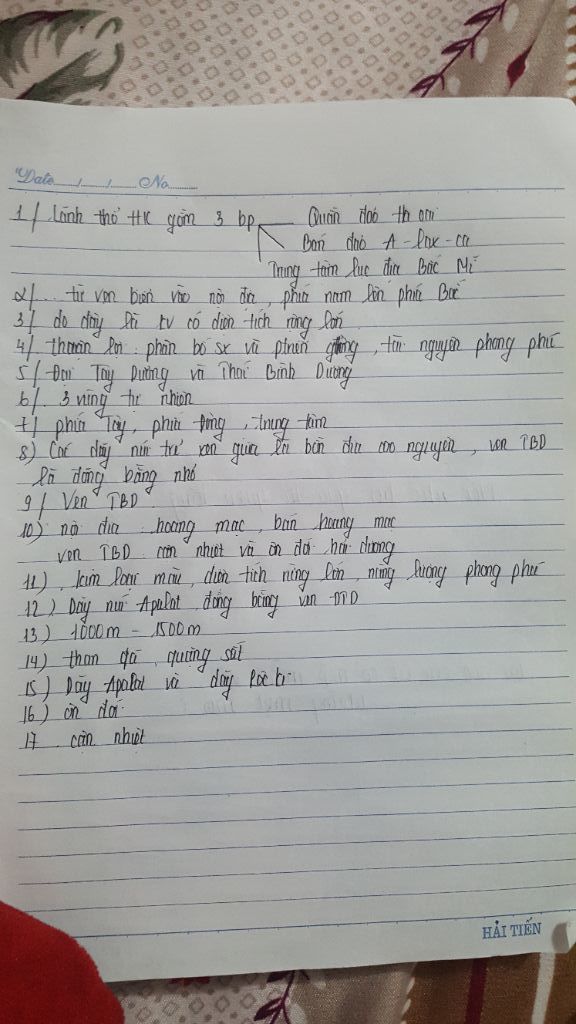 Date No
1/ Lãnh thổ HK gồm 3 bp Quần đảo Ha oai
Bán đảo A-lax-ca
Trung tâm lục địa Bắc Mĩ
2/ từ ven biển vào nội địa, phía nam lên phía Bắc
3/ do đây là kv có diện tích rộng lớn
4/ thuận lợi: phân bố sx và ptriển, tài nguyên phong phú
5/ Đại Tây Dương và Thái Bình Dương
6/ 3 vùng tự nhiên
7/ phía Tây, phía Đông, trung tâm
8) Các dãy núi trẻ xen giữa là bồn địa cao nguyên, ven TBD
là đồng bằng nhỏ
9/ Ven TBD
10) nội địa: hoang mạc, bán hoang mạc
ven TBD: cận nhiệt và ôn đới hải dương
11) kim loại màu, diện tích rừng lớn, năng lượng phong phú
12) Dãy núi Apalat, đồng bằng ven ĐTD
13) 1000m - 1500m
14) than đá, quặng sắt
15) Dãy Apalat và dãy Rocki
16) ôn đới
17 cận nhiệt
HẢI TIẾN